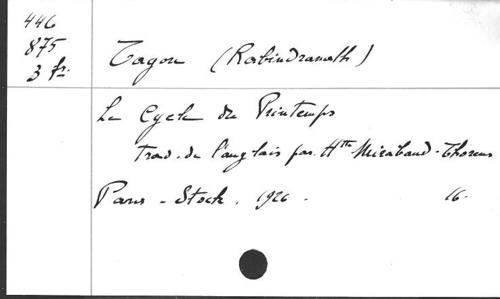 446
875
3 fr.
Tagore (Rabindranath)
Le Cycle du Printemps
Trad. de l'anglais par Htte Mirabaud-Thorens
Paris - Stock. 1926. 16.